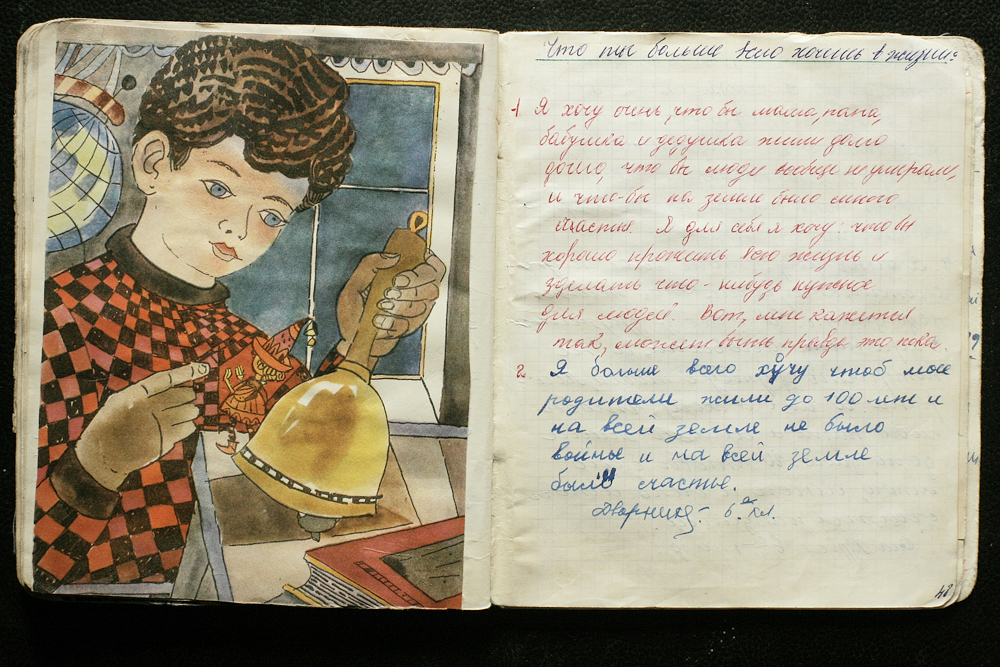 Что ты больше всего хочешь в жизни?
1 Я хочу очень, что бы мама, папа,
бабушка и дедушка жили долго
долго, что бы люди вообще не умерали,
и что-бы на земле было много
счастья. Я для себя я хочу: что бы
хорошо прожить всю жизнь и
зделать что-нибудь нужное
для людей. Вот, мне кажется
так, может быть правда это пока.
2 Я больше всего хочу чтоб мое
родители жили до 100 лет и
на всей земле не было
войны и на всей земле
было счастье.
6 кл.
42